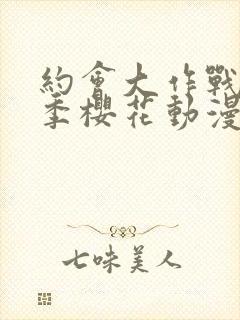 約會大作戰
季櫻花動漫
七味美人